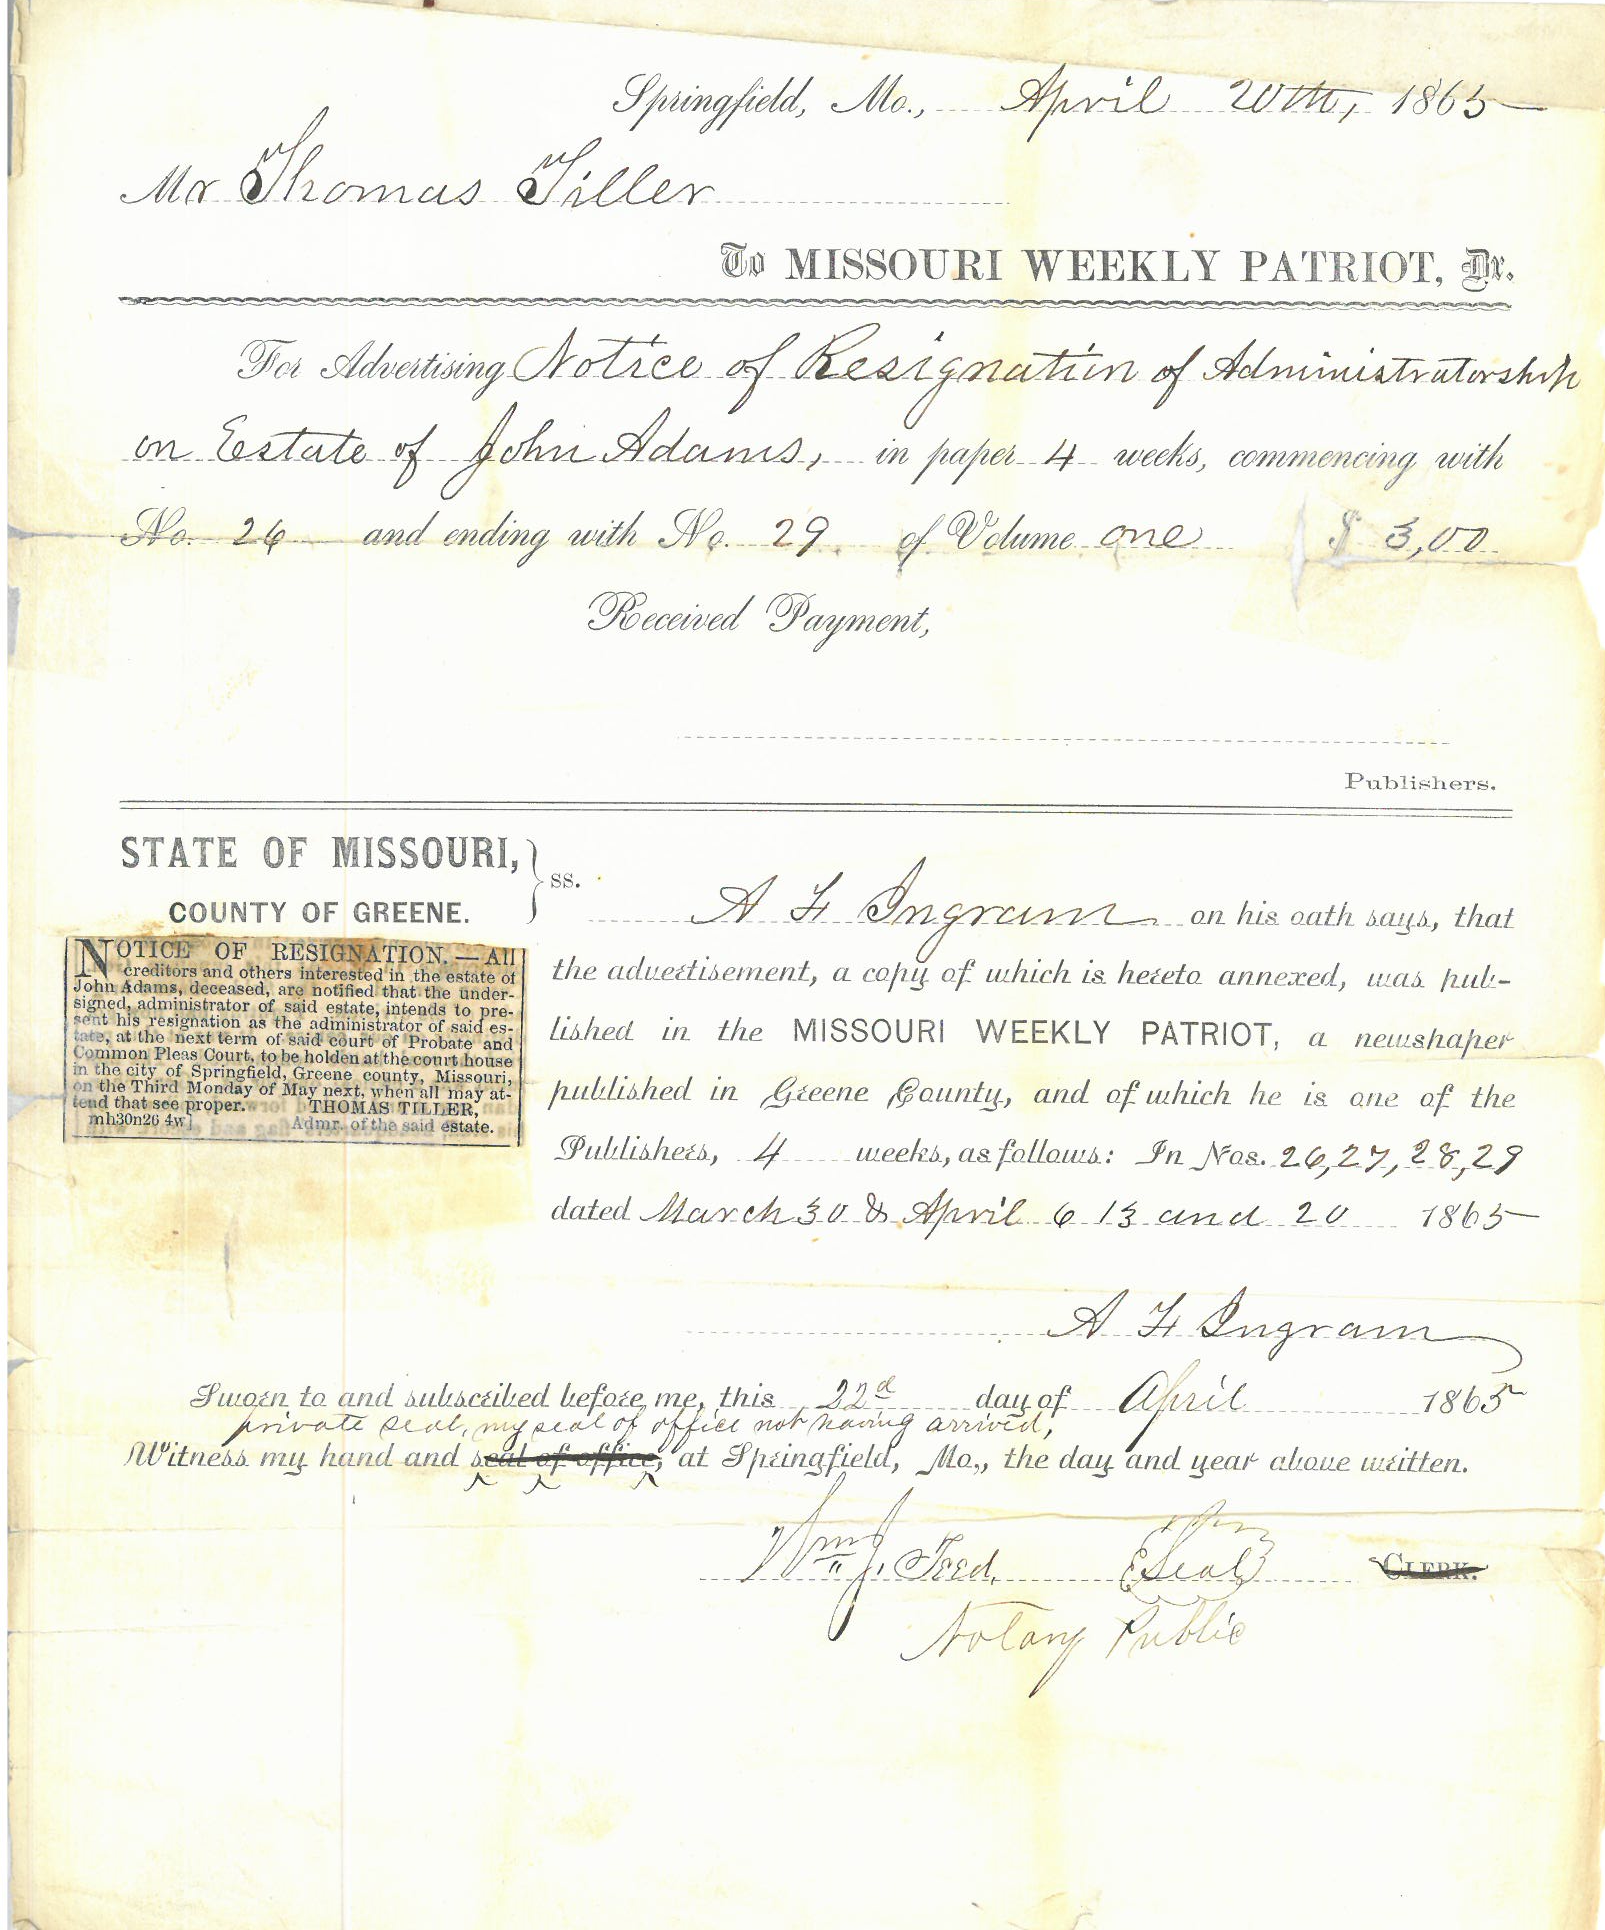 Springfield, Mo., April 20th, 1865
Mr Thomas Tiller
To MISSOURI WEEKLY PATRIOT, Dr.
For Advertising Notice of Resignation of Administratorship
on Estate of John Adams, in paper 4 weeks, commencing with
No. 26 and ending with No. 29 of Volume one $ 3,00
Received Payment,
Publishers.
STATE OF MISSOURI,
COUNTY OF GREENE.
ss.
A F Ingram on his oath says, that
the advertisement, a copy of which is hereto annexed, was pub-
lished in the MISSOURI WEEKLY PATRIOT, a newspaper
published in Greene County, and of which he is one of the
Publishers, 4 weeks, as follows: In Nos. 26, 27, 28, 29
dated March 30 & April 6 13 and 20 1865
NOTICE OF RESIGNATION.—All
creditors and others interested in the estate of
John Adams, deceased, are notified that the under-
signed, administrator of said estate, intends to pre-
sent his resignation as the administrator of said es-
tate, at the next term of said court of Probate and
Common Pleas Court, to be holden at the court house
in the city of Springfield, Greene county, Missouri,
on the Third Monday of May next, when all may at-
tend that see proper. THOMAS TILLER,
mh30n26 4w] Admr. of the said estate.
A F Ingram
Sworn to and subscribed before me, this 22d day of April 1865
private seal, my seal of office not having arrived,
Witness my hand and seal of office, at Springfield, Mo., the day and year above written.
Wm J. Teed. Seal CLERK.
Notary Public